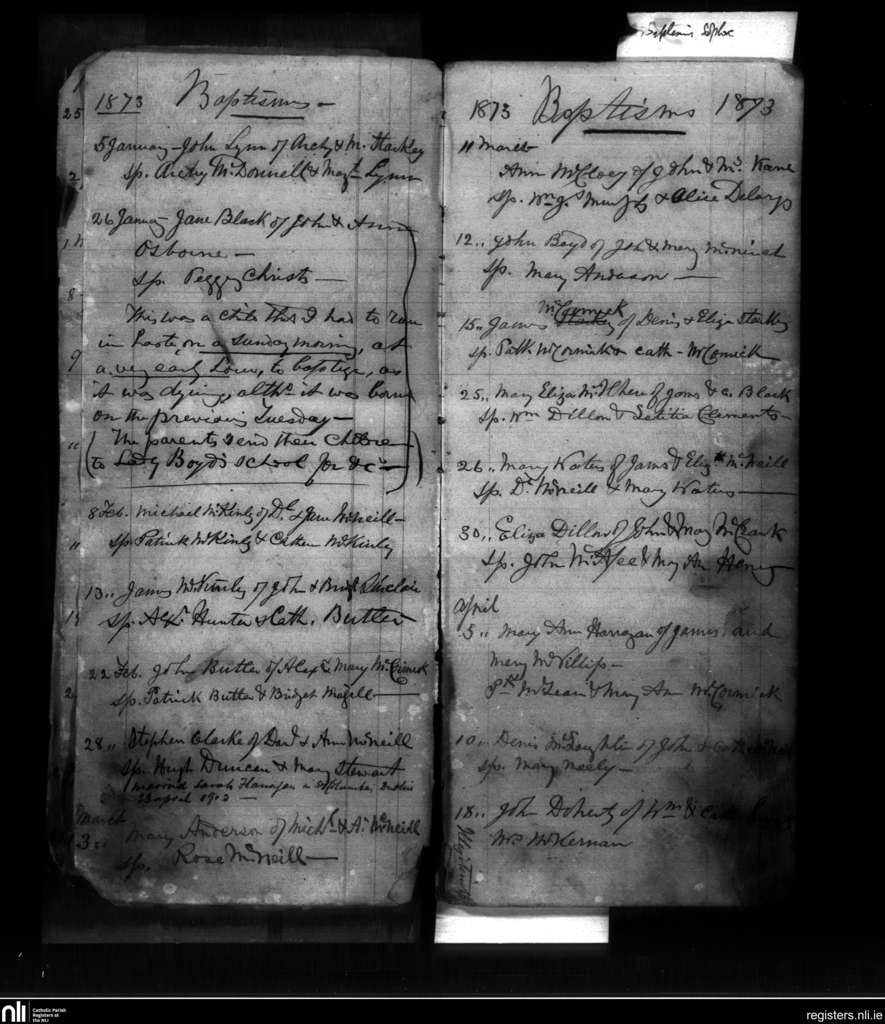 Baptisms
1873 Baptisms —
5 January - John Lynn of Archy & M. Hackley
sp. Archy McDonnell & Mag Lynn
26 January Jane Black of John & Ann
Osborne —
sp. Peggy Christs —
This was a child that I had to run
in haste, on a Sunday morning, at
a very early hour, to baptize, as
it was dying, altho it was born
on the previous Tuesday —
(The parents send their children
to Lady Boyd's School for &c —)
8 Feb. Michael McKinly of Dl & Jane McNeill —
sp. Patrick McKinly & Cathen McKinly
13 ,, James McKinly of John & Brigt Sinclair
sp. Alexr Hunter & Cath. Butler
22 Feb. John Butler of Alexr & Mary McCormick
sp. Patrick Butler & Bridget Magill —
28 ,, Stephen Clarke of Dad & Ann McNeill
sp. Hugh Duncan & Mary Stewart
married Sarah Flanagan in St Columbas, Dublin
23 April 1902 —
March
3 ,, Mary Anderson of Michl & A. McNeill
sp. Rose McNeill —
1873 Baptisms 1873
11 March
Ann McCloey of John & Ms. Kane
sp. Wm Js Murphy & Alice Delargy
12 ,, John Boyd of Joh & Mary McNeill
sp. Mary Anderson —
15 ,, James McCormick of Denis & Eliza Starkey
sp. Patk McCormick & Cath - McCormick
25 ,, Mary Eliza of Jams & C. Black
sp. Wm Dillon & Letitia Clements —
26 ,, Mary Waters of James & Elizth McNeill
sp. Dl McNeill & Mary Waters —
30 ,, Eliza Dillon of John & May McClark
sp. John McAfee & Mary An Henry
April
5 ,, Mary Ann Harragan of James and
Mary McPhillip —
Pk McLean & Mary Ann McCormick
10 ,, Denis McLaughlin of John & Cath
sp. Mary Neely —
18 ,, John Doherty of Wm & Cath
Mrs McKernan
nli
Catholic Parish
Registers at
the NLI
registers.nli.ie